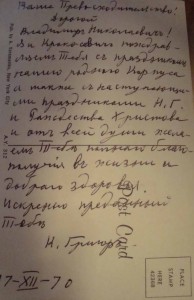 Ваше Превосходительство!
дорогой
Владимир Николаевич!
В. и Крюковским поздрав-
ляем Тебя с праздником
нашего родного Корпуса
а также с наступающи-
ми праздниками Н. Г.
и Рождества Христова
и от всей души жела-
ем Тебе полного благо-
получия в жизни и
доброго здоровья.
Искренно преданный
Тебе
Н.
17-XII-70
Post Card
PLACE
STAMP
HERE